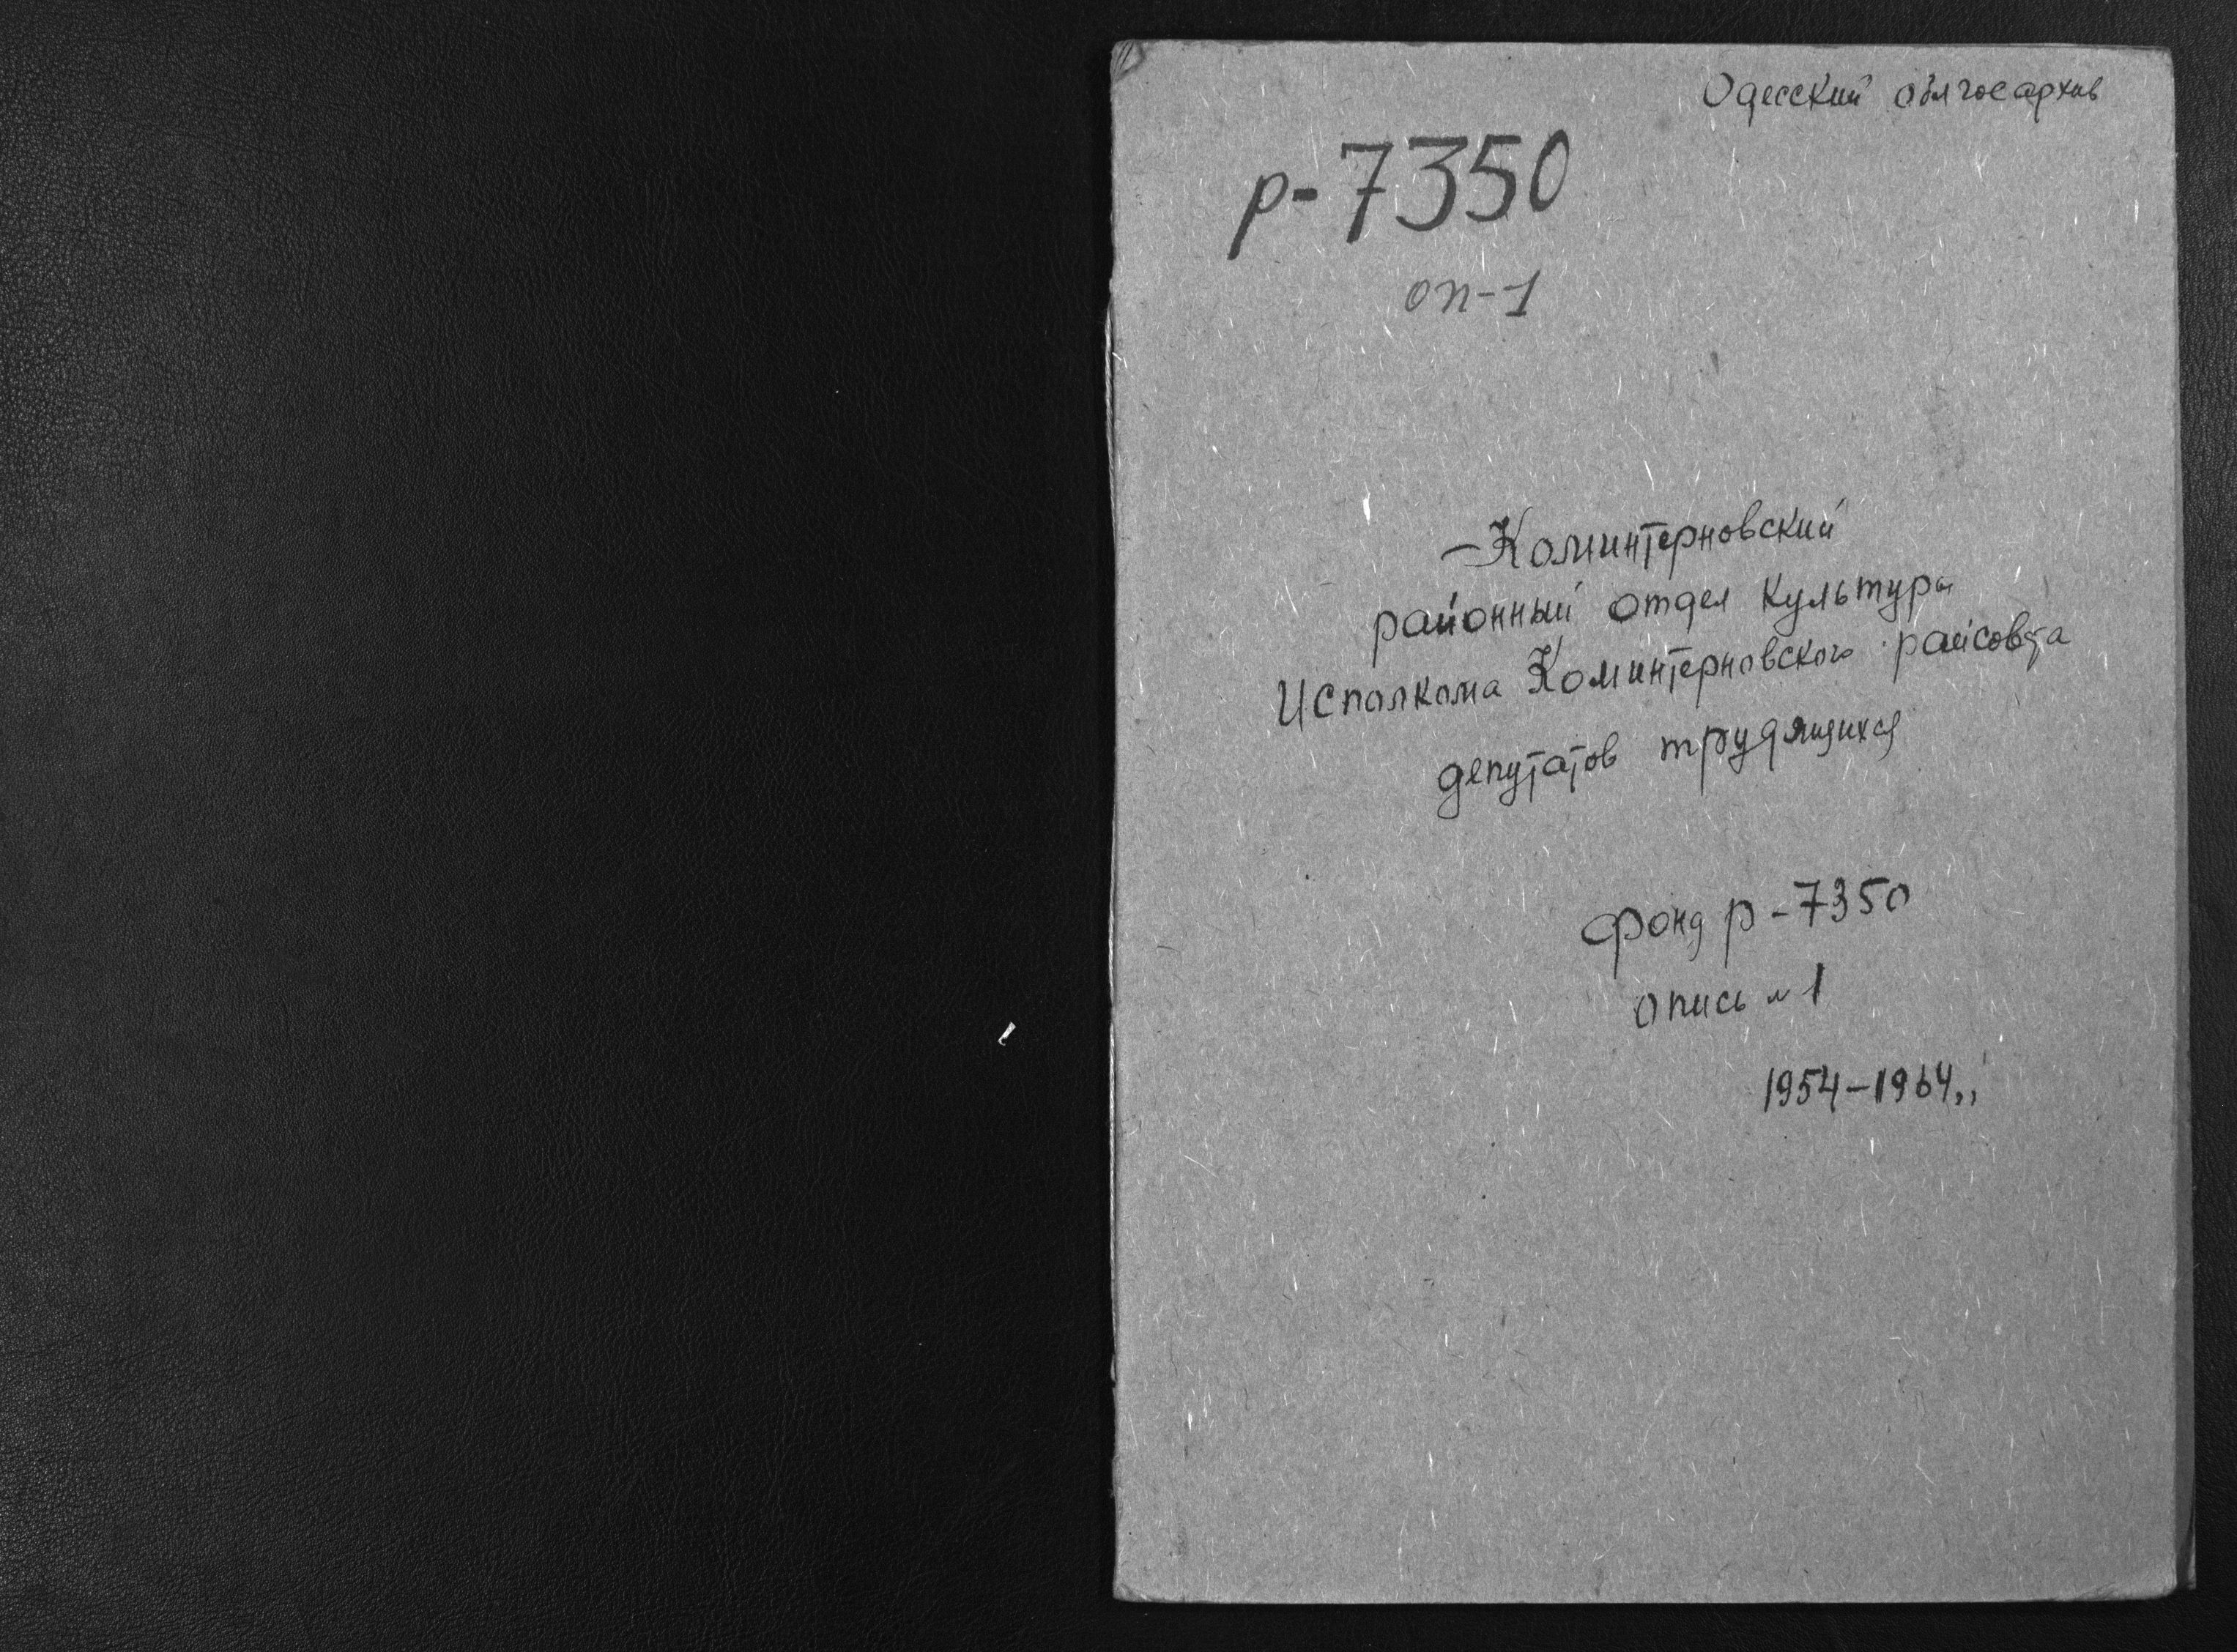 Одесский облгосархив
р-7350
оп-1
-Коминтерновский
районный отдел культуры
Исполкома Коминтерновского райсовета
депутатов трудящихся
Фонд р-7350
опись №1
1954-1964